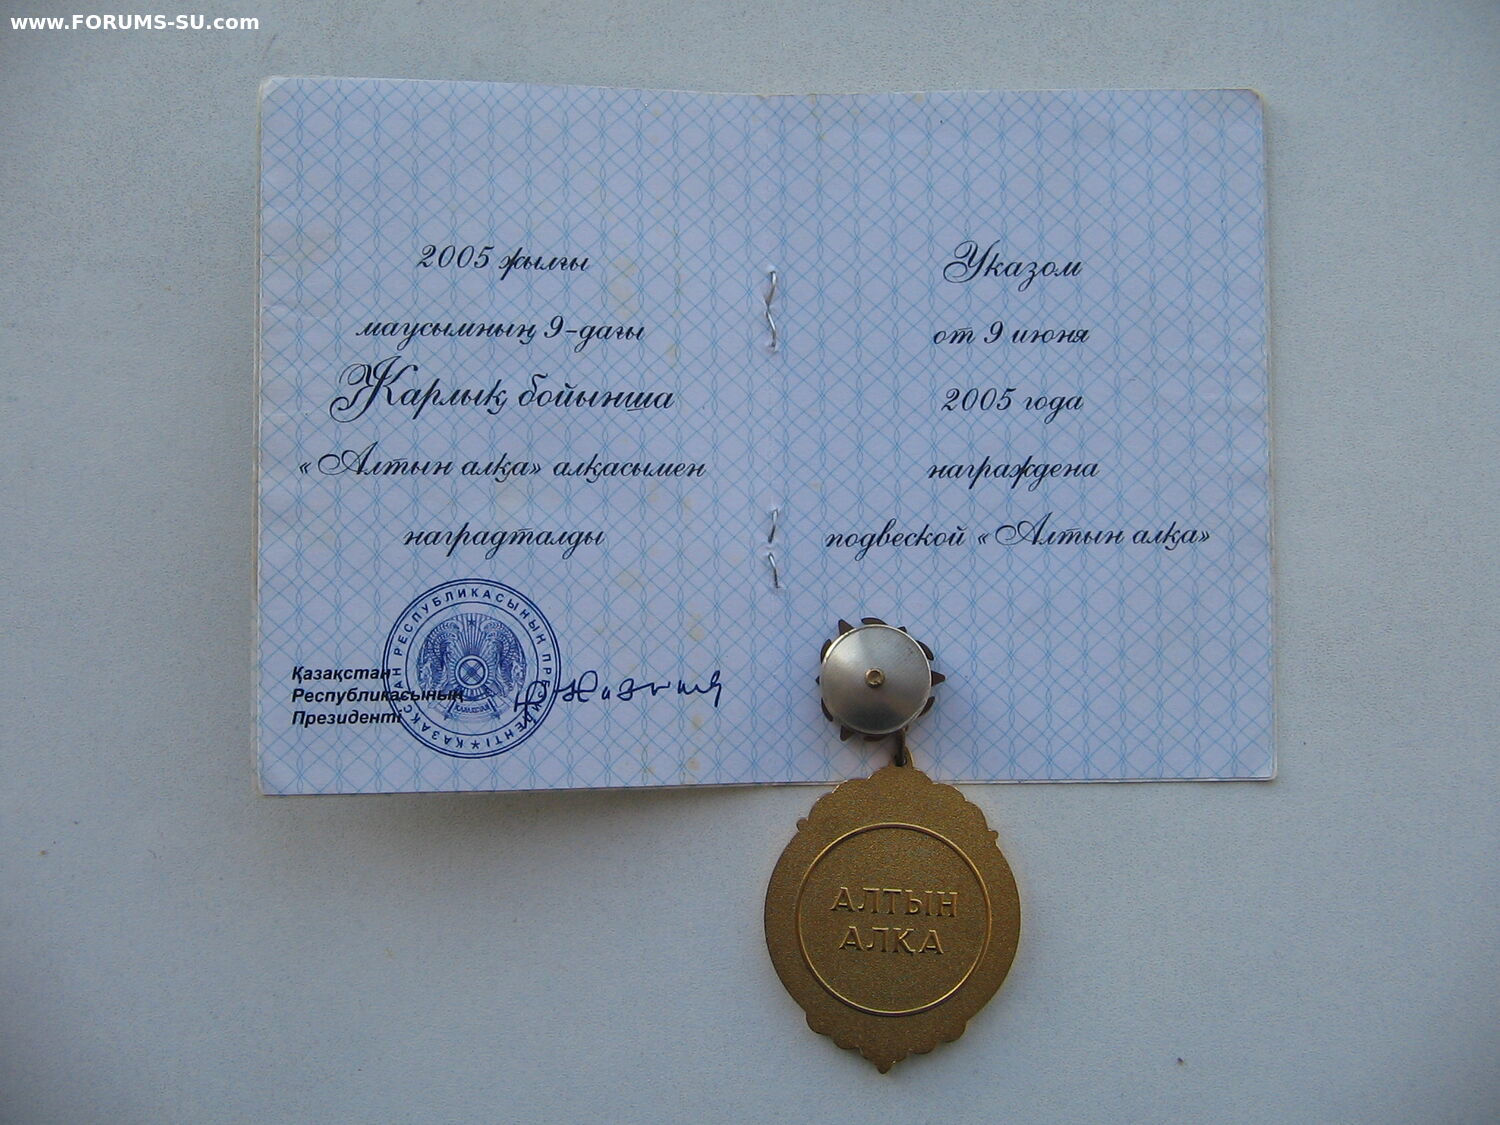 www.FORUMS-SU.com
2005 жылғы
маусымның 9-дағы
Жарлық бойынша
«Алтын алқа» алқасымен
наградталды
Қазақстан
Республикасының
Президенті
ҚАЗАҚСТАН РЕСПУБЛИКАСЫНЫҢ ПРЕЗИДЕНТІ
Указом
от 9 июня
2005 года
награждена
подвеской «Алтын алқа»
АЛТЫН
АЛҚА